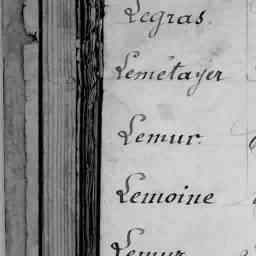 Legras.
Lemétayer
Lemur.
Lemoine
Lemur